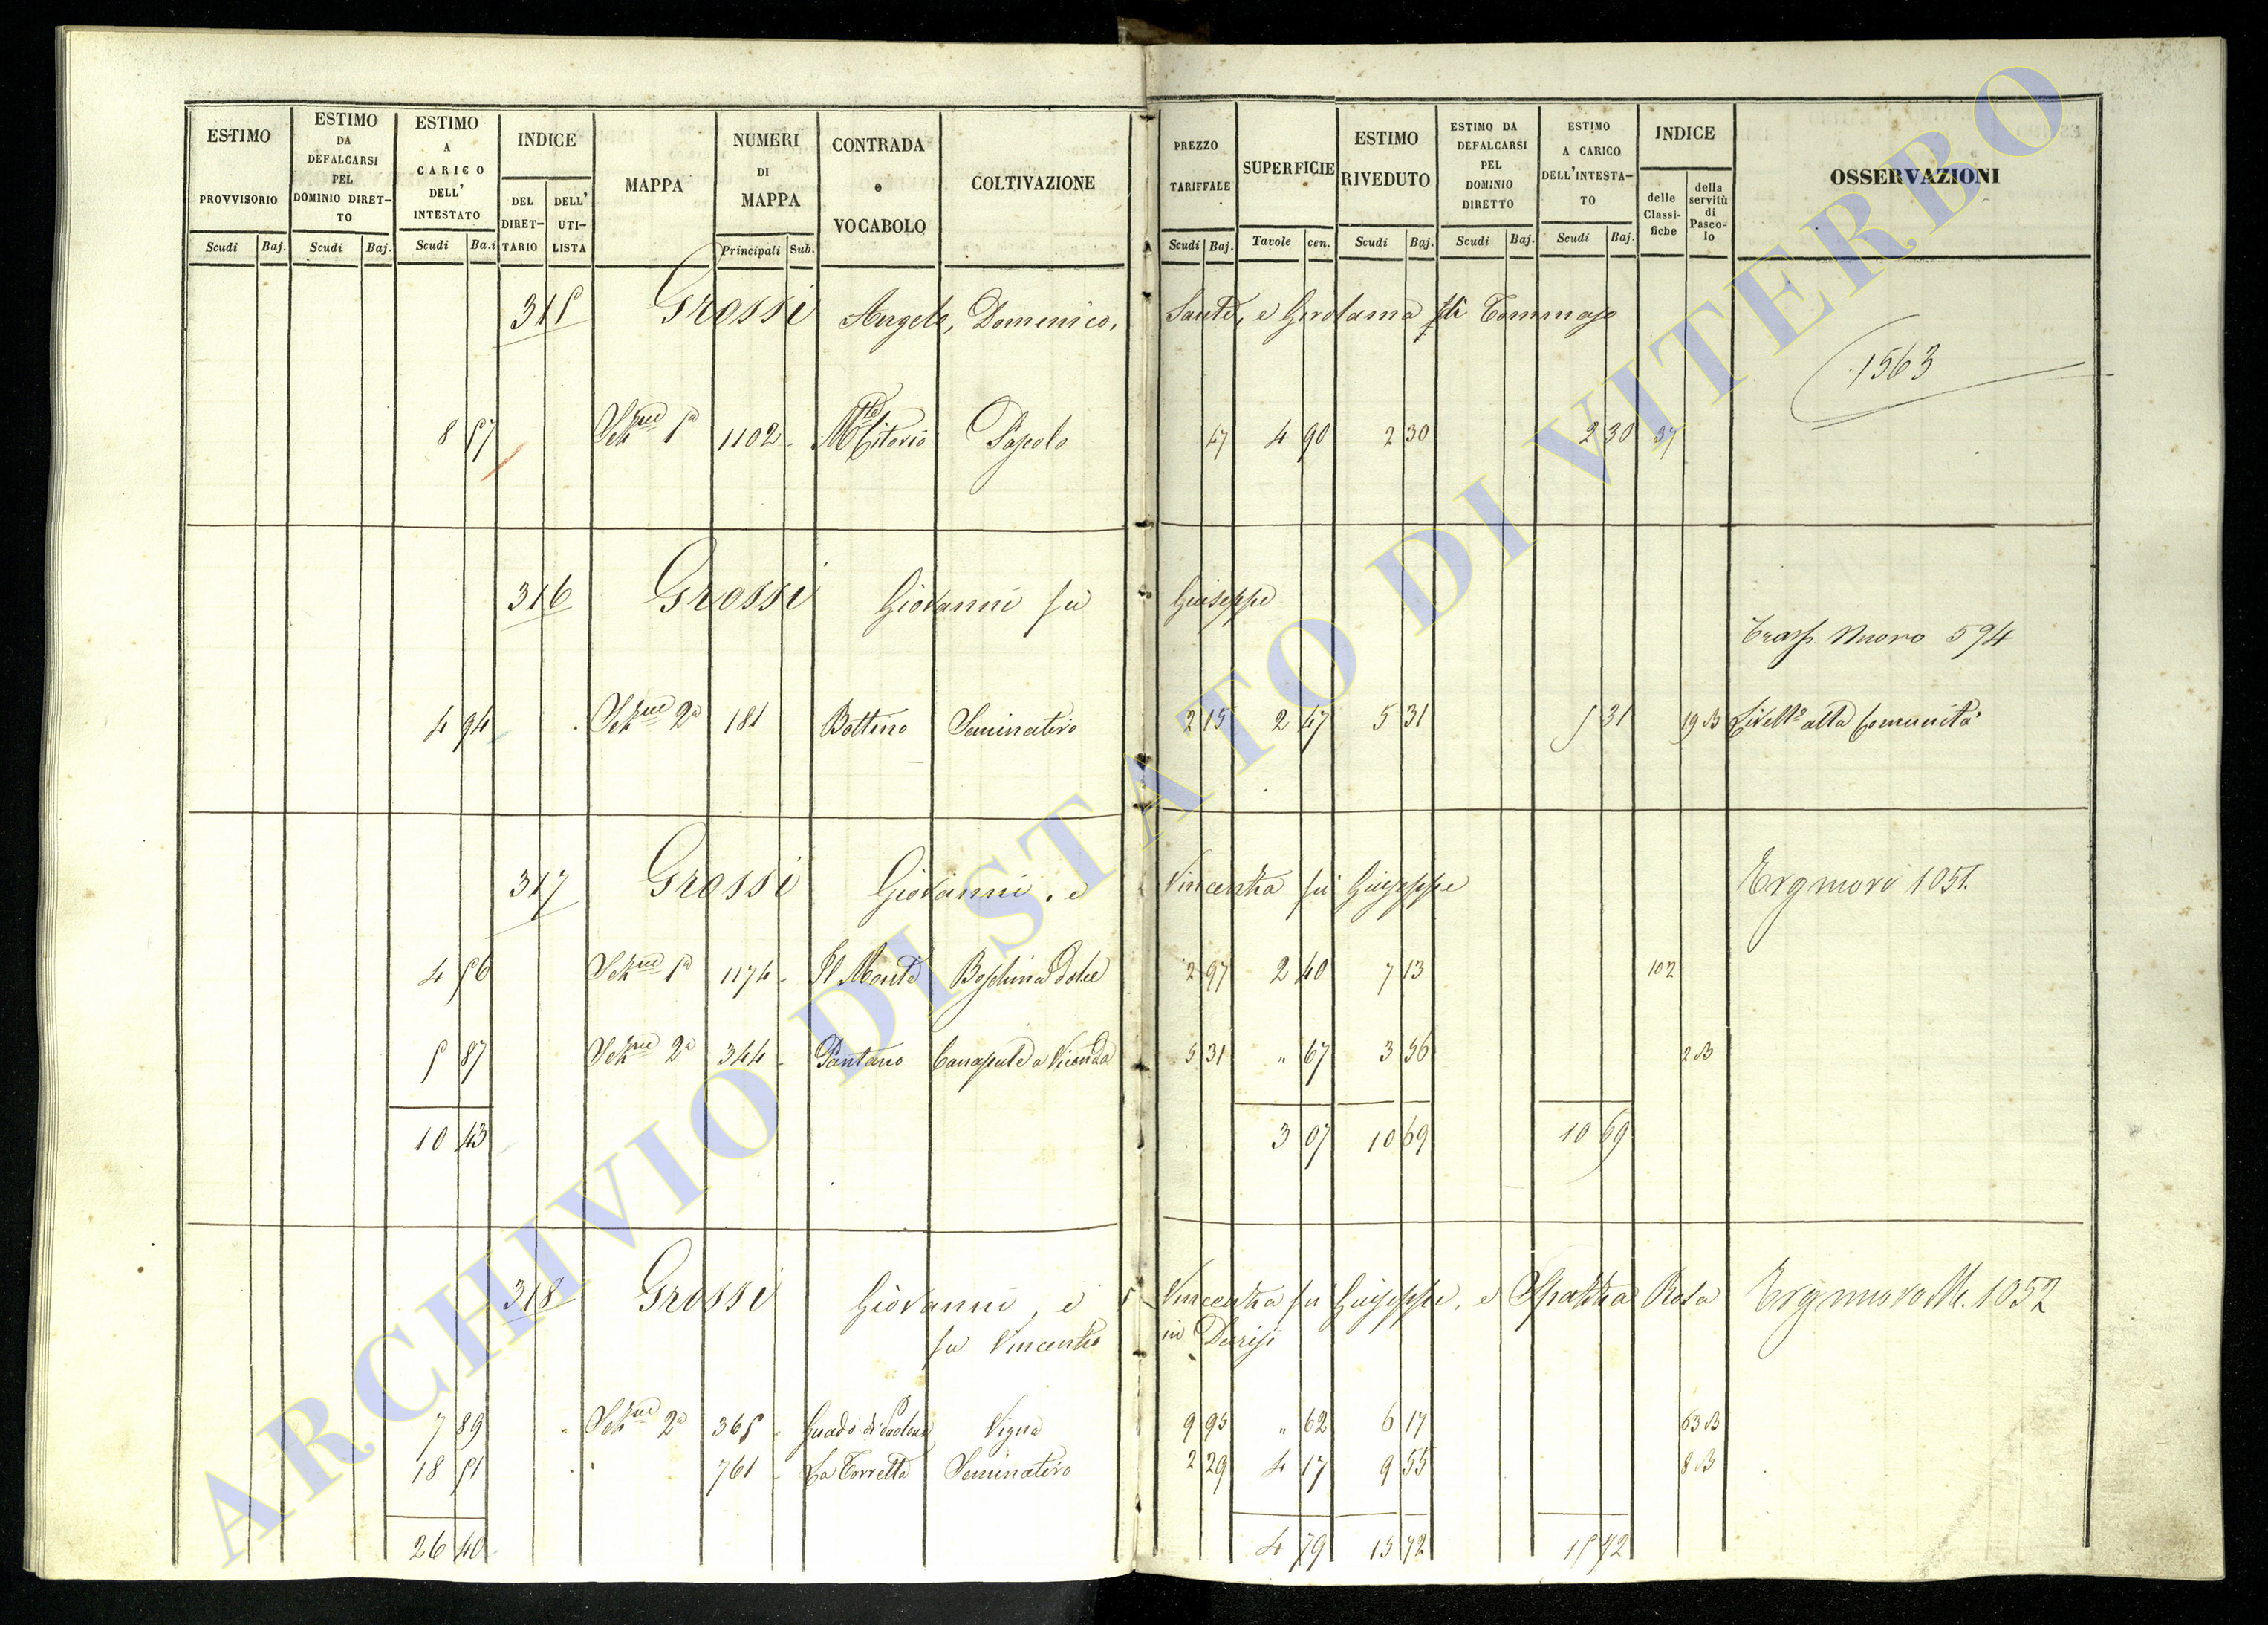 ESTIMO PROVVISORIO
ESTIMO DA DEFALCARSI PEL DOMINIO DIRET-TO
ESTIMO A CARICO DELL' INTESTATO
INDICE
DEL DIRET-TARIO
DELL' UTI-LISTA
MAPPA
NUMERI DI MAPPA
CONTRADA e VOCABOLO
COLTIVAZIONE
PREZZO TARIFFALE
SUPERFICIE
ESTIMO RIVEDUTO
ESTIMO DA DEFALCARSI PEL DOMINIO DIRETTO
ESTIMO A CARICO DELL'INTESTA-TO
INDICE
delle Classi-fiche
della servitù di Pasco-lo
OSSERVAZIONI
Scudi Baj. Scudi Baj. Scudi Ba.i Principali Sub. Scudi Baj. Tavole cen. Scudi Baj. Scudi Baj. Scudi Baj.
315 Grossi Angelo, Domenico, Sante, e Girolama fli Tommaso
1563
8 57 Sezne 1a 1102 Mte Citorio Pascolo 47 4 90 2 30 2 30 37
316 Grossi Giovanni fu Giuseppe
Trasp Nuovo 594
4 94 Sezne 2a 181 Bottino Seminativo 2 15 2 47 5 31 5 31 19 B Livello alla Comunità
317 Grossi Giovanni, e Vincenza fu Giuseppe 1051
4 56 Sezne 1a 1174 Il Monte Boschina dolce 2 97 2 40 7 13 102
5 87 Sezne 2a 344 Pantano Canapule a Vicenda 5 31 " 67 3 56 2 B
10 43 3 07 10 69 10 69
318 Grossi Giovanni, e Vincenza fu Giuseppe, e Rosa 1052
fu Vincenzo in
7 89 Sezne 2a 365 Guado di Vigna 9 95 " 62 6 17 63 B
18 51 " 761 La Torretta Seminativo 2 29 4 17 9 55 8 B
26 40 4 79 15 72 15 72
ARCHIVIO DI STATO DI VITERBO